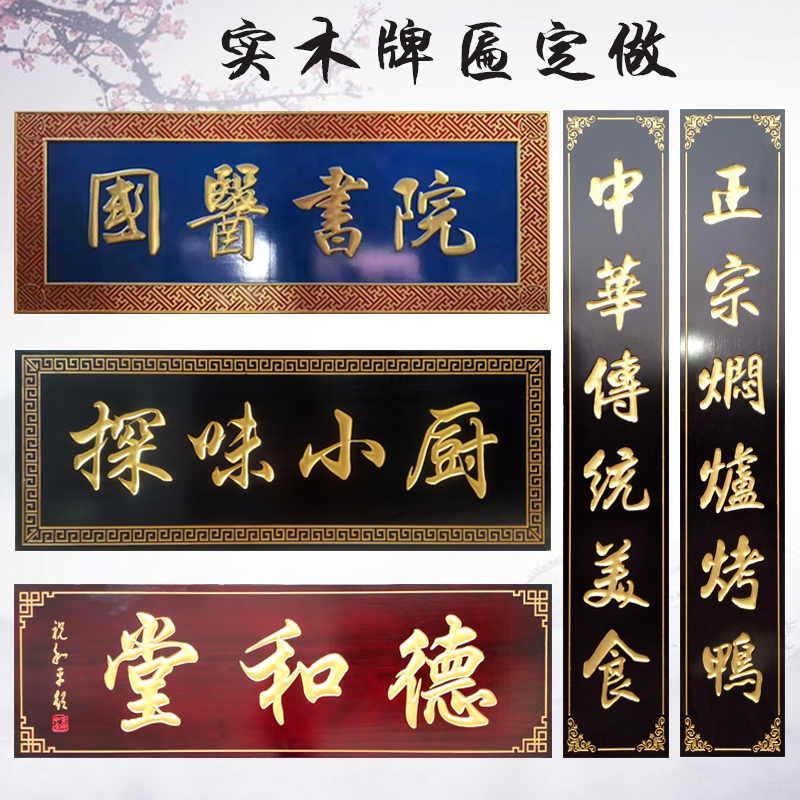 实木牌匾定做
國醫書院
探味小厨
堂和德
祝和平題
中華傳統美食
正宗燜爐烤鴨